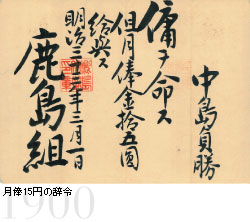 中島貞勝
傭ヲ命ス
但月俸金拾五圓
給與ス
明治三十三年三月一日
鹿島組
月俸15円の辞令
1900